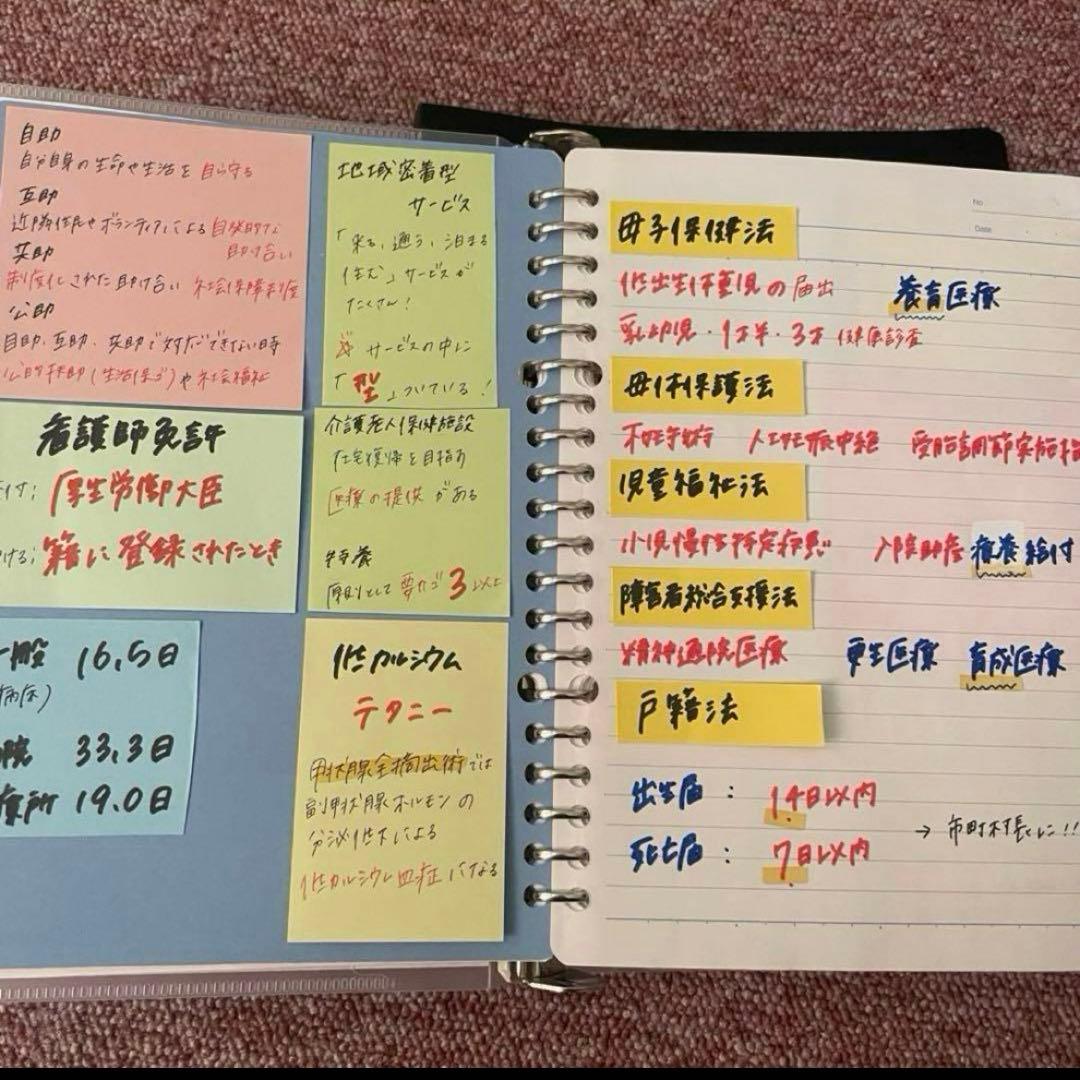 自助
自分自身の生命や生活を 自ら守る
互助
近隣住民やボランティアによる 自発的な
助け合い
共助
制度化された助け合い 社会保障制度
公助
自助、互助、共助で対応できない時
公的扶助(生活保護)や社会福祉
地域密着型
サービス
「来る、通う、泊まる
住む」サービスが
たくさん!
☆ サービスの中に
「型」ついている!
看護師免許
付; 厚生労働大臣
ける; 籍に登録されたとき
介護老人保健施設
在宅復帰を目指す
医療の提供がある
特養
原則として 要介ゴ3以上
一般 16.5日
病床)
院 33.3日
療所 19.0日
低カルシウム
テタニー
甲状腺全摘出術では
副甲状腺ホルモンの
分泌低下による
低カルシウム血症になる
No
Date
母子保健法
低出生体重児の届出 養育医療
乳幼児・1才半・3才 健康診査
母体保護法
不妊手術 人工妊娠中絶 受胎調節実施指
児童福祉法
小児慢性特定疾患 入院助産 療養給付
障害者総合支援法
精神通院医療 更生医療 育成医療
戸籍法
出生届: 14日以内
→ 市町村長に!!
死亡届: 7日以内